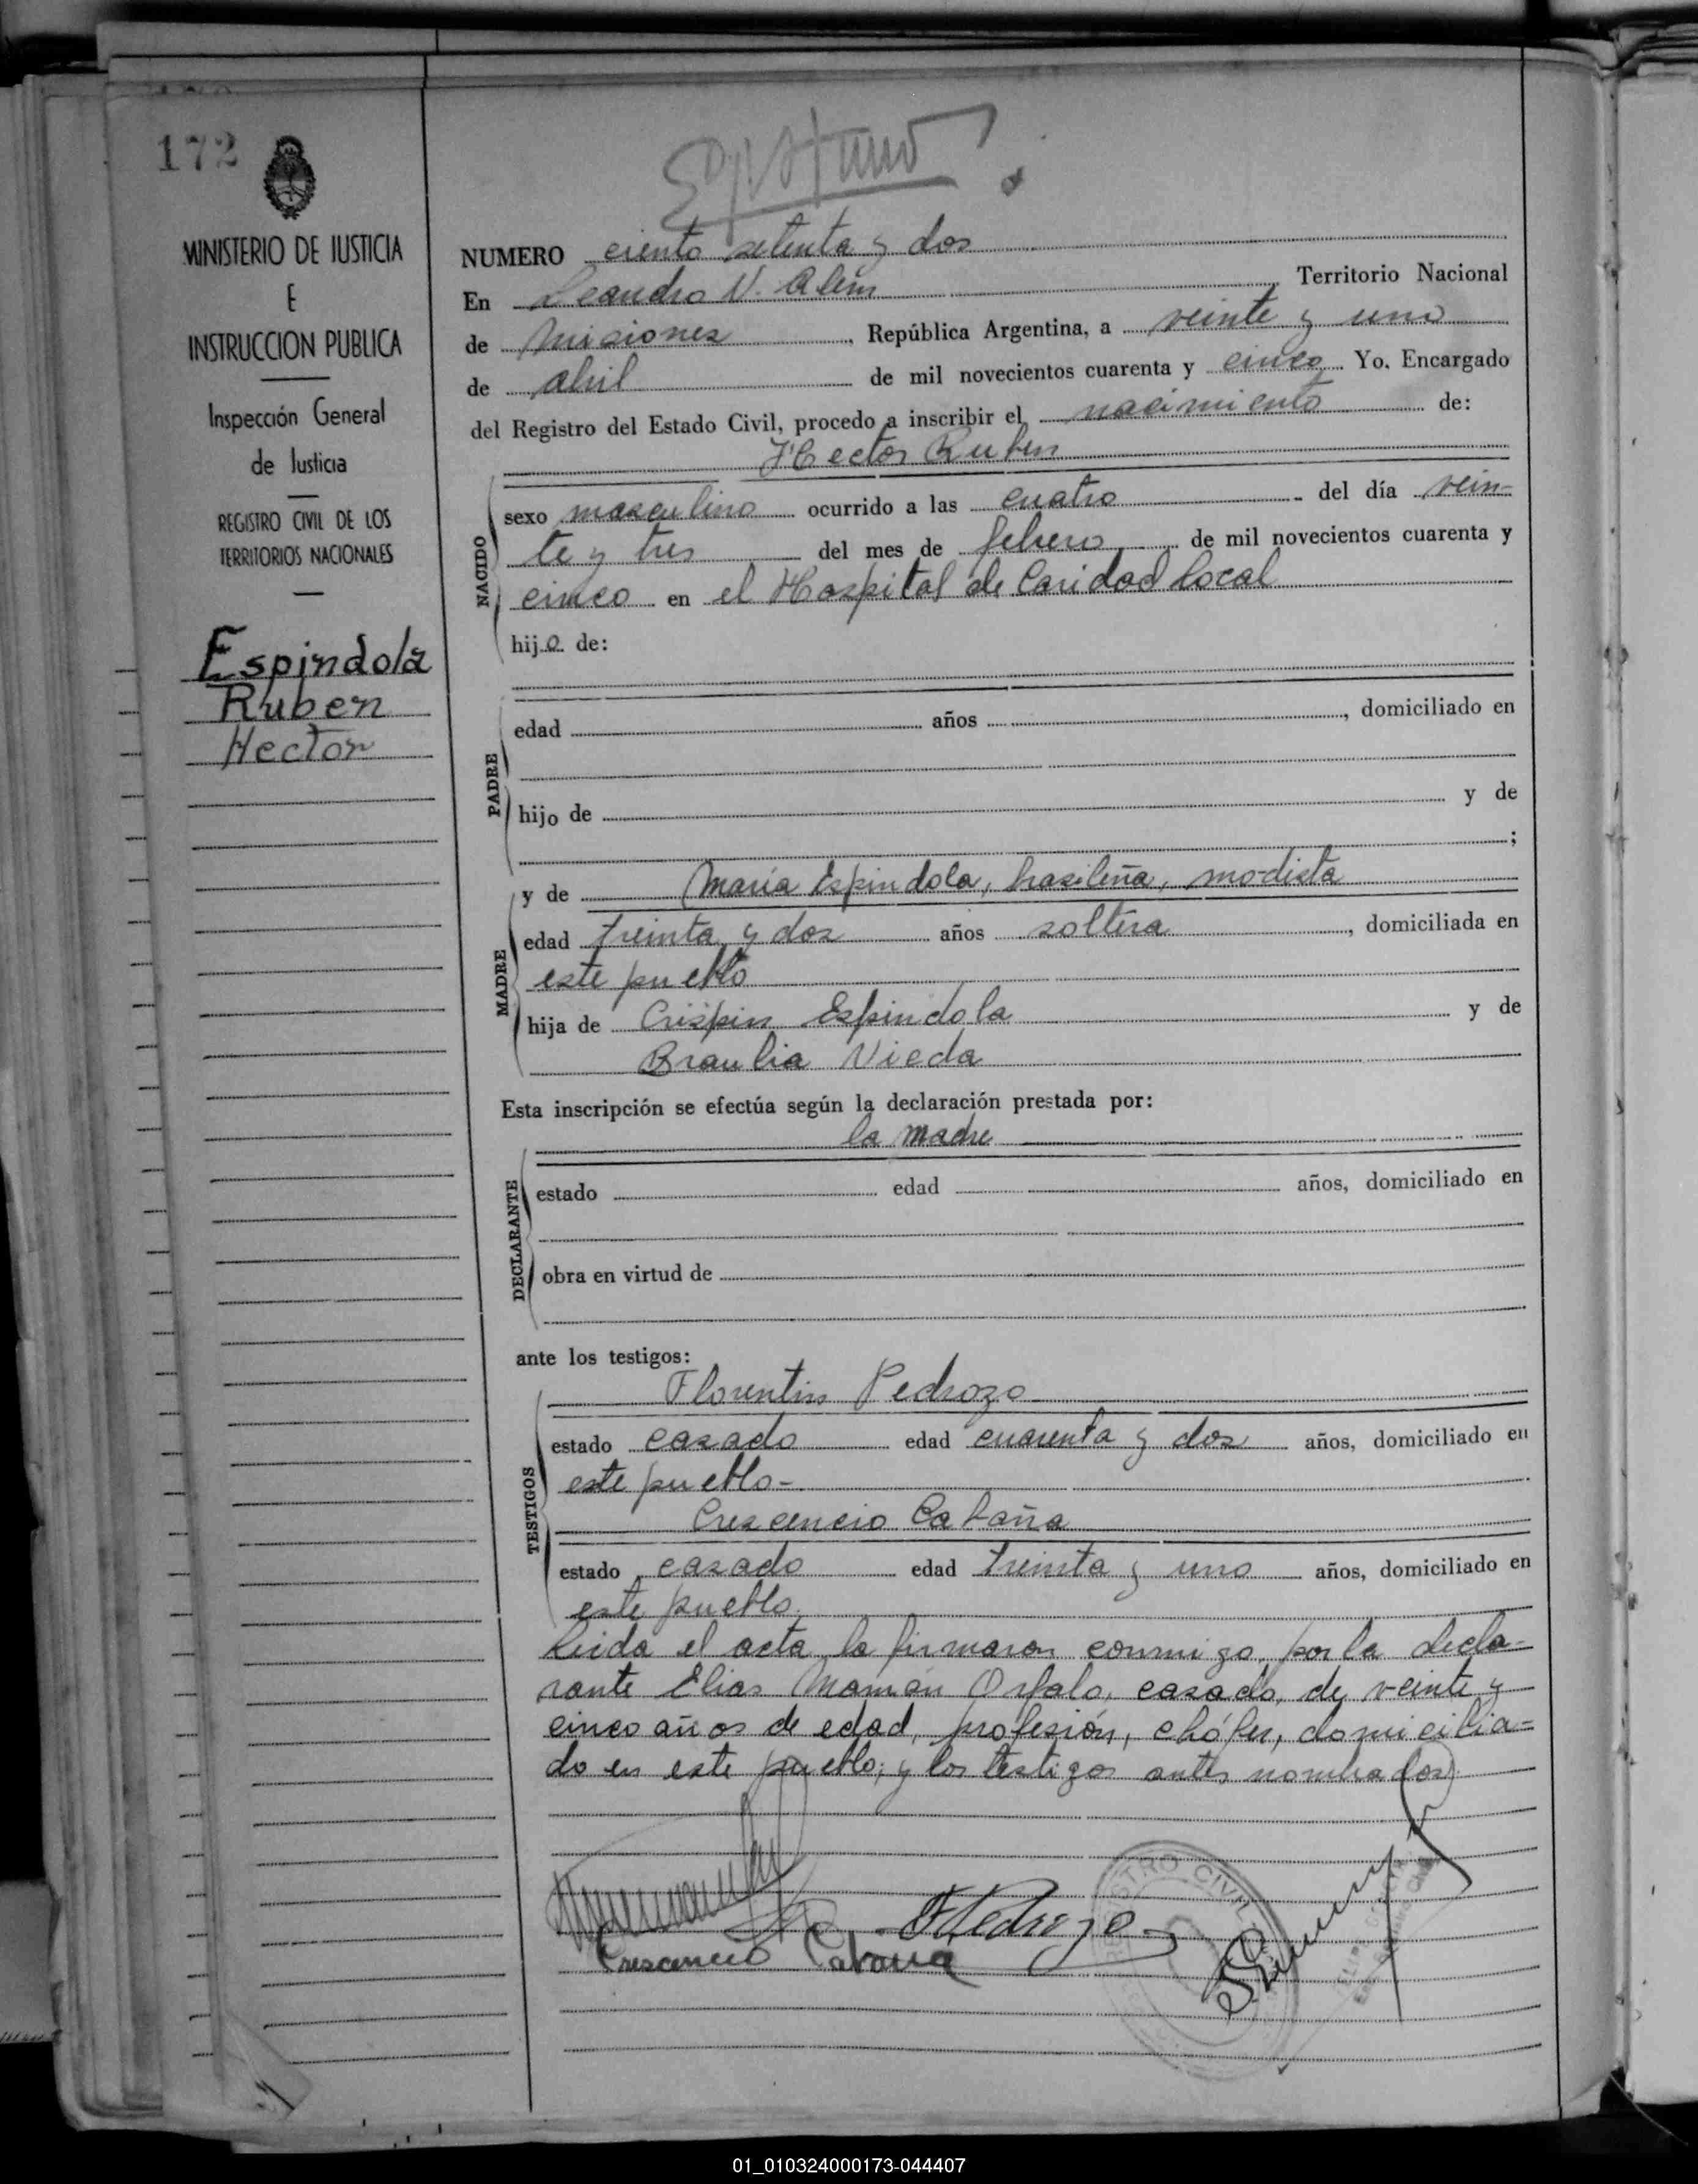 172
MINISTERIO DE JUSTICIA
E
INSTRUCCION PUBLICA
Inspección General
de Justicia
REGISTRO CIVIL DE LOS
TERRITORIOS NACIONALES
Espindola
Ruben
Hector
NUMERO ciento setenta y dos
En Leandro N. Alem Territorio Nacional
de Misiones, República Argentina, a veinte y uno
de abril de mil novecientos cuarenta y cinco Yo, Encargado
del Registro del Estado Civil, procedo a inscribir el nacimiento de:
Hector Ruben
NACIDO
sexo masculino ocurrido a las cuatro del día vein-
te y tres del mes de febrero de mil novecientos cuarenta y
cinco en el Hospital de Caridad local
hijo de:
PADRE
edad años, domiciliado en
hijo de y de
;
MADRE
y de Maria Espindola, brasileña, modista
edad treinta y dos años soltera, domiciliada en
este pueblo
hija de Crispin Espindola y de
Braulia Vieda
Esta inscripción se efectúa según la declaración prestada por:
la madre
DECLARANTE
estado edad años, domiciliado en
obra en virtud de
ante los testigos:
TESTIGOS
Florentin Pedrozo
estado casado edad cuarenta y dos años, domiciliado en
este pueblo-
Crescencio Cabaña
estado casado edad treinta y uno años, domiciliado en
este pueblo.
Leida el acta la firmaron conmigo, por la decla-
rante Elias Orfalo, casado, de veinte y
cinco años de edad, profesión, chófer, domicilia-
do en este pueblo; y los testigos antes nombrados
F Pedrozo
Crescencio Cabaña
REGISTRO CIVIL
01_010324000173-044407